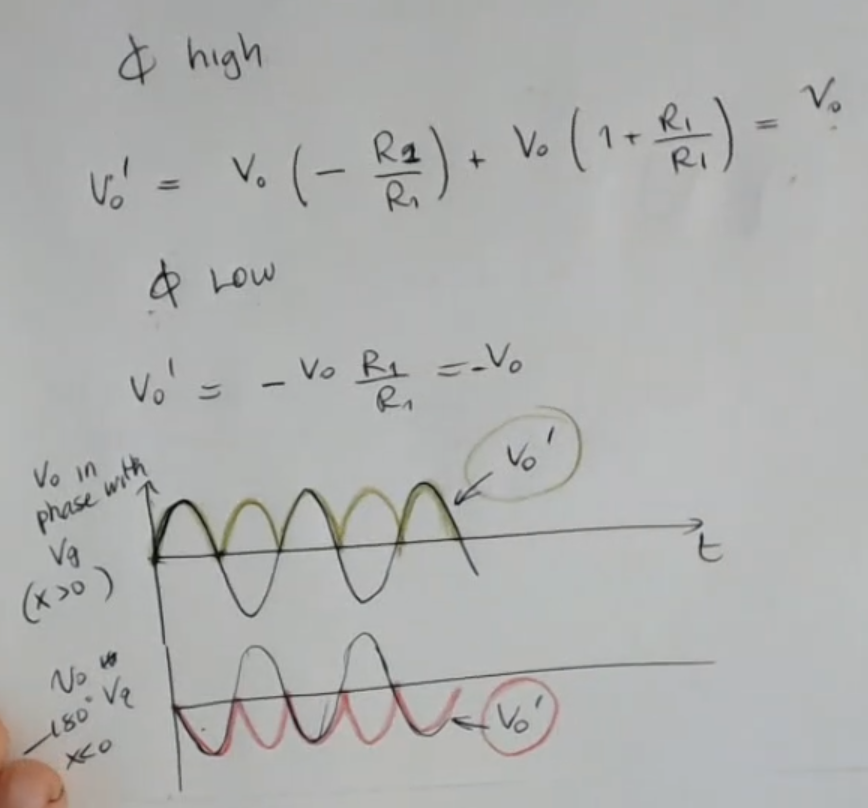 ф high
Vo' = Vo (- R1/R1) + Vo (1 + R1/R1) = Vo
ф Low
Vo' = - Vo R1/R1 = -Vo
Vo in
phase with
Vg
(x>0)
Vo'
t
Vo
-180° Vg
x<0
Vo'